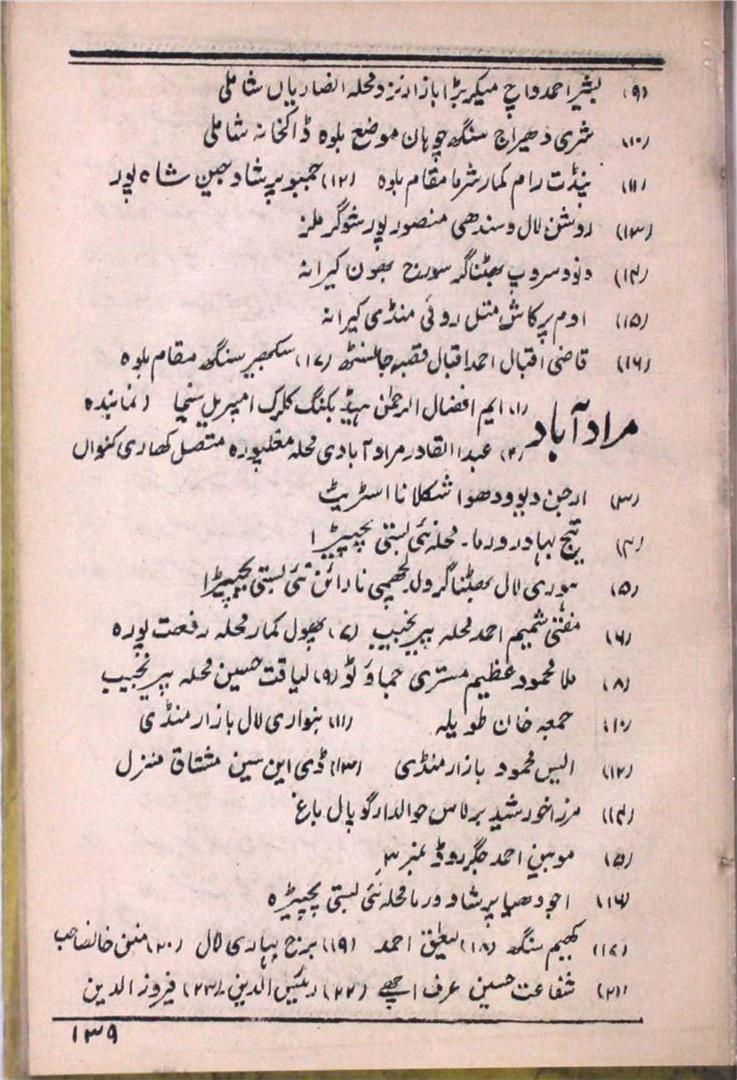 (۹) بشیر احمد واچ میکر بڑا بازار نزد محلہ انصاریاں شاملی
(۱۰) شری دھیراج سنگھ چوہان موضع بلوہ ڈاکخانہ شاملی
(۱۱) پنڈت رام کمار شرما مقام بلوہ (۱۲) جمبو پرشاد جین شاہ پور
(۱۳) روشن لال وسندھی منصور پور شوگر ملز
(۱۴) ونود سروپ بھٹناگر سورج بھون کیرانہ
(۱۵) اوم پرکاش متل روئی منڈی کیرانہ
(۱۶) قاضی اقبال احمد اقبال قصبہ جالسنٹھ (۱۷) سکمبیر سنگھ مقام بلوہ
مراد آباد (۱) ایم افضال الرحمٰن ہیڈ بکنگ کلرک امپریل سنیما (نمائندہ
(۲) عبدالقادر مرادآبادی محلہ مغلپورہ متصل کھاری کنواں
(۳) ارجن دیو ودھوا شکلانا اسٹریٹ
(۴) تیج بہادر ورما۔ محلہ نئی بستی چھپیڑا
(۵) ہوری لال بھٹناگر ولد لچھمی نارائن نئی بستی چھپیڑا
(۶) مفتی شمیم احمد محلہ پیر نجیب (۷) پھول کمار محلہ رفعت پورہ
(۸) ملا محمود عظیم مستری (۹) لیاقت حسین محلہ پیر نجیب
(۱۰) جمعہ خان طویلہ (۱۱) بنواری لال بازار منڈی
(۱۲) ایس محمود بازار منڈی (۱۳) ڈی این سین مشتاق منزل
(۱۴) مرزا خورشید برلاس حوالدار گوپال باغ
(۱۵) موہن احمد جگر روڈ نمبر ۳
(۱۶) اجودھیا پرشاد ورما محلہ نئی بستی چھپیڑہ
(۱۷) کھیم سنگھ (۱۸) لئیق احمد (۱۹) برج بہاری لال (۲۰) منن خانصاحب
(۲۱) شفاعت حسین عرف اچھے (۲۲) رئیس الدین۔ (۲۳) فیروز الدین
۱۳۹